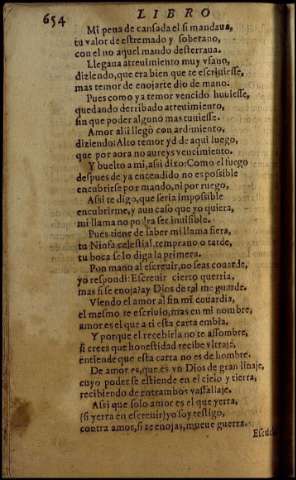 654 LIBRO
Mi pena de cansada el si mandaua,
tu valor de estremado y soberano,
con el no aquel mando desterraua.
Llegaua atreuimiento muy vfano,
diziendo, que era bien que te escriuiesse,
mas temor de enojarte dio de mano.
Pues como ya temor vencido huuiesse,
quedando derribado atreuimiento,
sin que poder alguno mas tuuiesse.
Amor alli llegò con ardimiento,
diziendo: Alto temor yd de aqui luego,
que por aora no aureys vencimiento.
Y buelto a mi, assi dixo: Como el fuego
despues de ya encendido no es possible
encubrirse por mando, ni por ruego,
Assi te digo, que seria impossible
encubrirme, y aun caso que yo quiera,
mi llama no podra ser inuisible.
Pues tiene de saber mi llama fiera,
tu Ninfa celestial, temprano o tarde,
tu boca se lo diga la primera.
Pon mano al escreuir, no seas couarde,
yo respondi: Escreuir cierto querria,
mas si se enoja? ay Dios de tal me guarde.
Viendo el amor al fin mi couardia,
el mesmo te escriuio, mas en mi nombre,
amor es el que a ti esta carta embia.
Y porque el recebirla no te assombre,
si crees que honestidad recibe vltraje,
entiende que esta carta no es de hombre.
De amor es, que es vn Dios de gran linaje,
cuyo poder se estiende en el cielo y tierra,
recibiendo de entrambos vassallaje.
Assi que solo amor es el que yerra,
(si yerra en escreuir) yo soy testigo,
contra amor, si te enojas, mueue guerra.